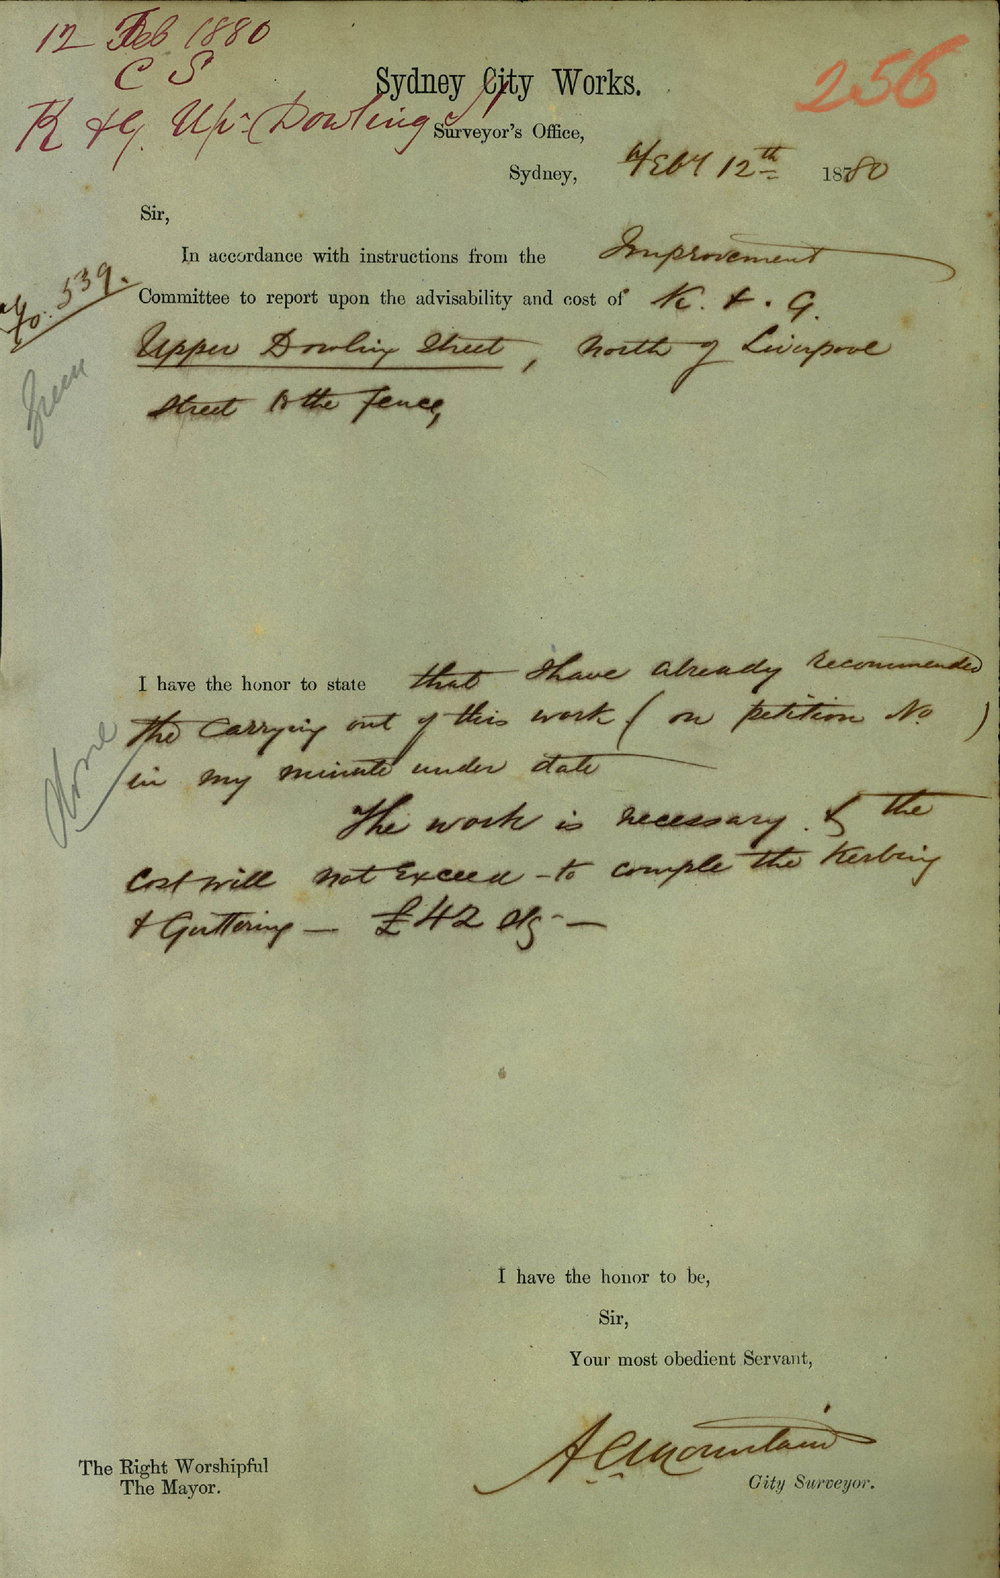 12 Feb 1880
C S
K & G. Up. Dowling St
256
Sydney City Works.
Surveyor's Office,
Sydney, Feby 12th 1880
Sir,
In accordance with instructions from the Improvement
No. 539.
Committee to report upon the advisability and cost of K. & . G.
Upper Dowling Street, North of Liverpool
Street to the fence,
I have the honor to state that I have already recommended
the carrying out of this work ( on petition No. )
in my minute under date
The work is necessary . & the
Cost will not Exceed - to comple the Kerbing
& Guttering — £42 Stg - —
I have the honor to be,
Sir,
Your most obedient Servant,
A C Mountain
City Surveyor.
The Right Worshipful
The Mayor.